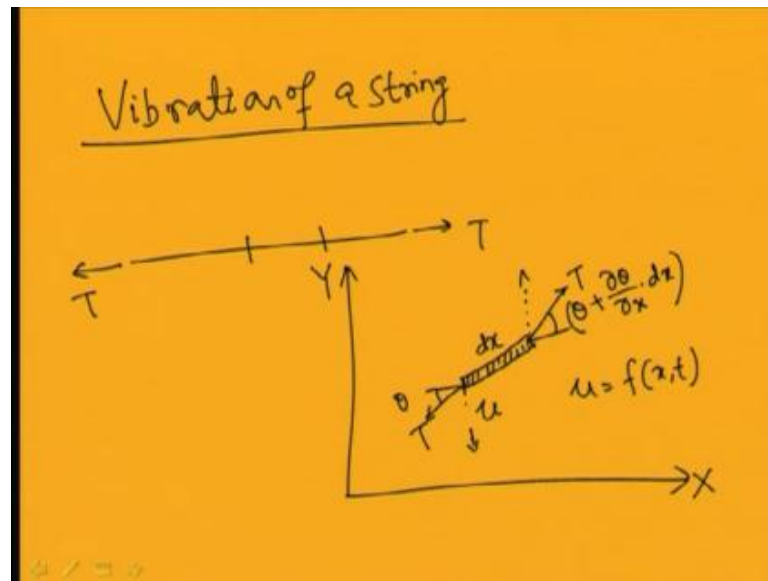 Vibration of a string
T
T
Y
T
(θ + ∂θ/∂x . dx)
dx
u = f(x,t)
θ
u
T
X